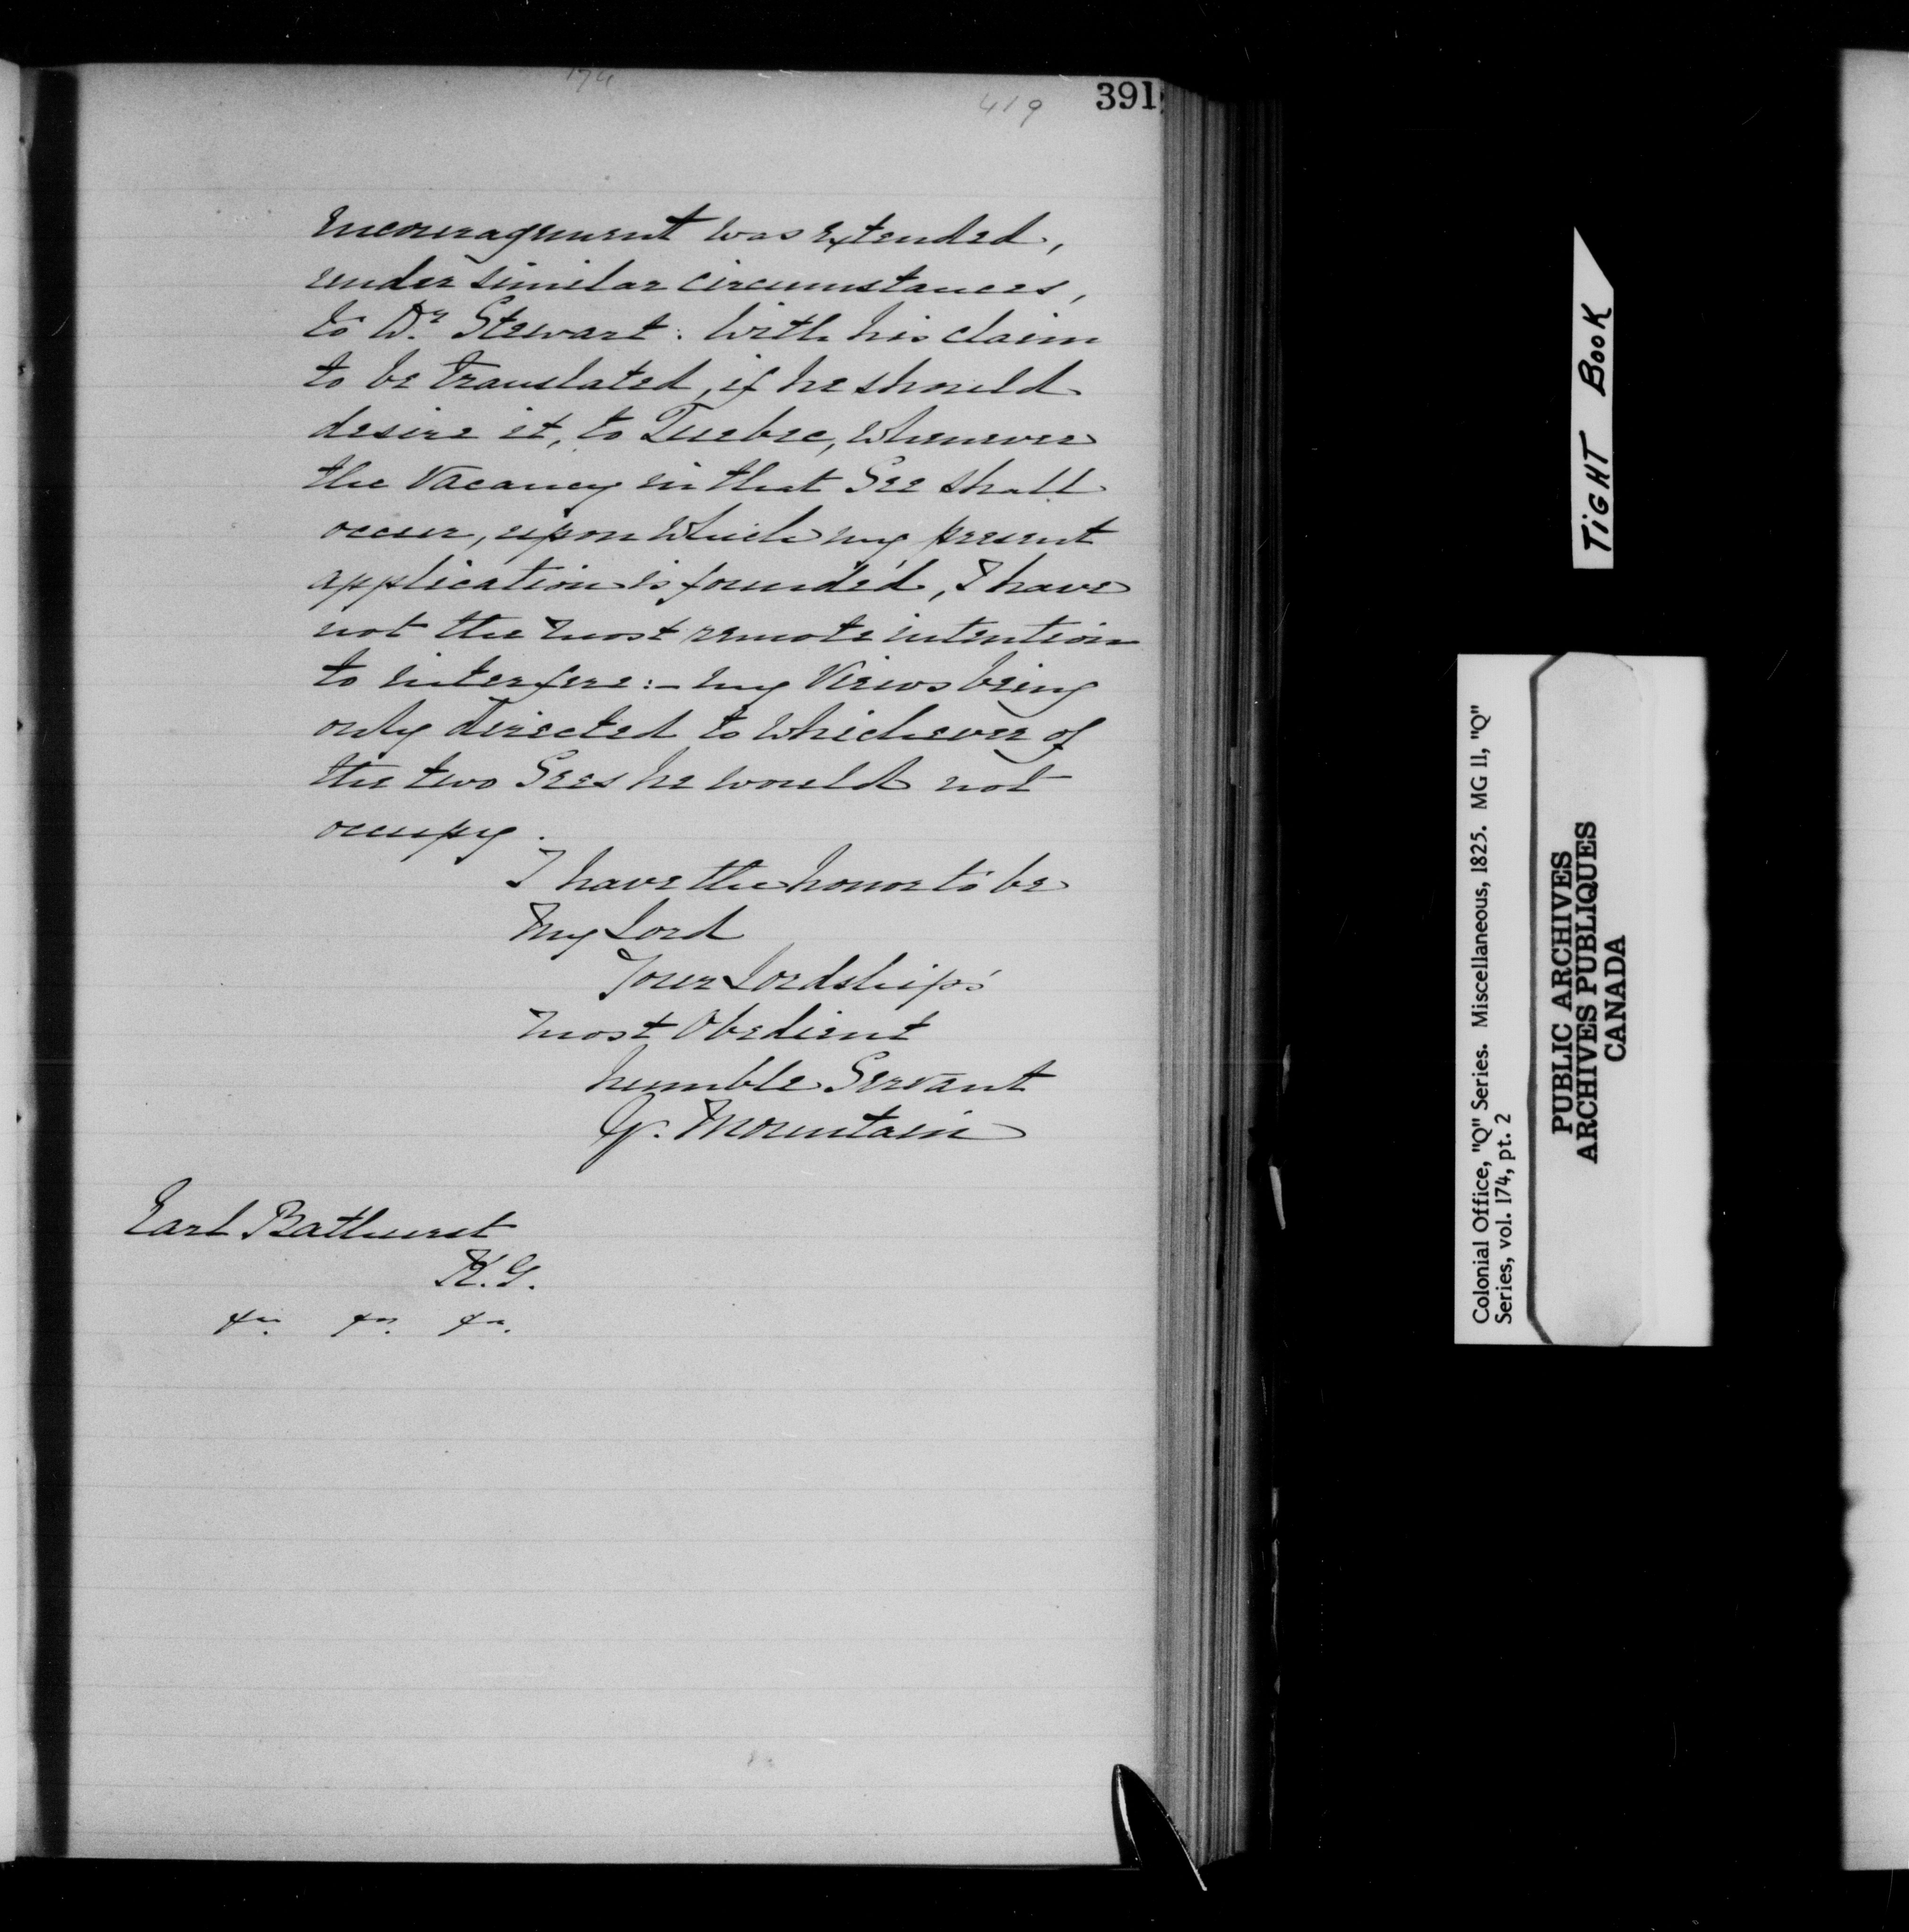 174
419
391
encouragement was extended,
under similar circumstances,
to Dr. Stewart. With his claim
to be translated, if he should
desire it, to Quebec, whenever
the vacancy in that See shall
occur, upon which my present
application is founded, I have
not the most remote intention
to interfere:- my views being
only directed to whichever of
the two Sees he would not
occupy.
I have the honor to be
My Lord
Your Lordship's
most Obedient
humble Servant
G. Mountain
Earl Bathurst
K.G.
&c. &c. &c.
TIGHT BOOK
Colonial Office, "Q" Series. Miscellaneous, 1825. MG 11, "Q"
Series, vol. 174, pt. 2
PUBLIC ARCHIVES
ARCHIVES PUBLIQUES
CANADA